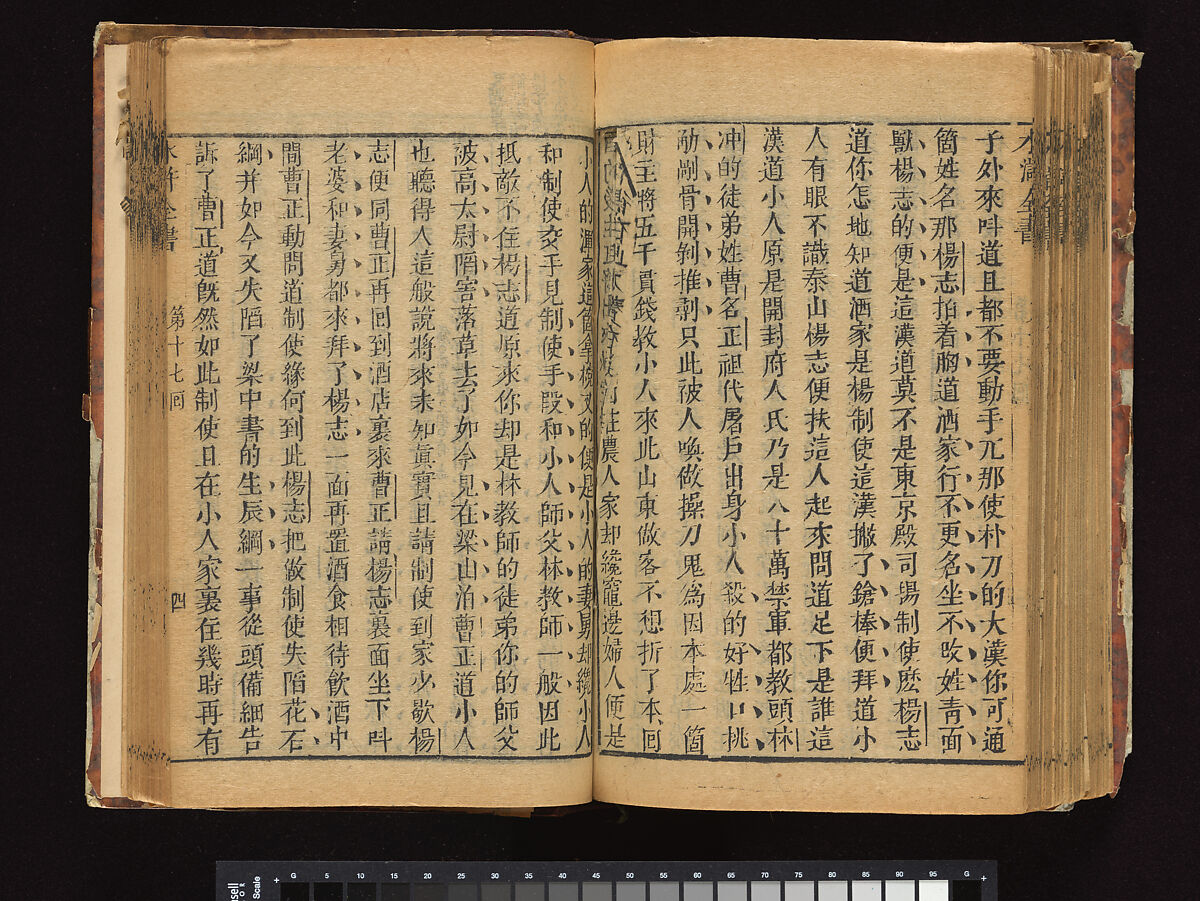 水滸全書
子外來呌道且都不要動手兀那使朴刀的大漢你可通
箇姓名那楊志拍着胸道洒家行不更名坐不改姓青面
獸楊志的便是這漢道莫不是東京殿司楊制使麽楊志
道你怎地知道洒家是楊制使這漢撇了鎗棒便拜道小
人有眼不識泰山楊志便扶這人起來問道足下是誰這
漢道小人原是開封府人氏乃是八十萬禁軍都教頭林
冲的徒弟姓曹名正祖代屠戶出身小人殺的好牲口挑
觔剮骨開剝推剥只此被人喚做操刀鬼爲因本處一箇
財主將五千貫錢教小人來此山東做客不想折了本囘
農人家却纔竈邊婦人便是
小人的渾家這箇拿杈的便是小人的妻舅却纔小人
和制使交手見制使手段和小人師父林教師一般因此
抵敵不住楊志道原來你却是林教師的徒弟你的師父
被高太尉陷害落草去了如今見在梁山泊曹正道小人
也聽得人這般說將來未知眞實且請制使到家少歇楊
志便同曹正再囘到酒店裏來曹正請楊志裏面坐下呌
老婆和妻舅都來拜了楊志一面再置酒食相待飲酒中
間曹正動問道制使緣何到此楊志把做制使失陷花石
綱并如今又失陷了梁中書的生辰綱一事從頭備細告
訴了曹正道旣然如此制使且在小人家裏住幾時再有
水滸全書 第十七囘 四
Munsell COLOR Scale
G 5 10 15 20 25 30 35 40 45 50 55 60 65 70 75 80 85 90 95 G